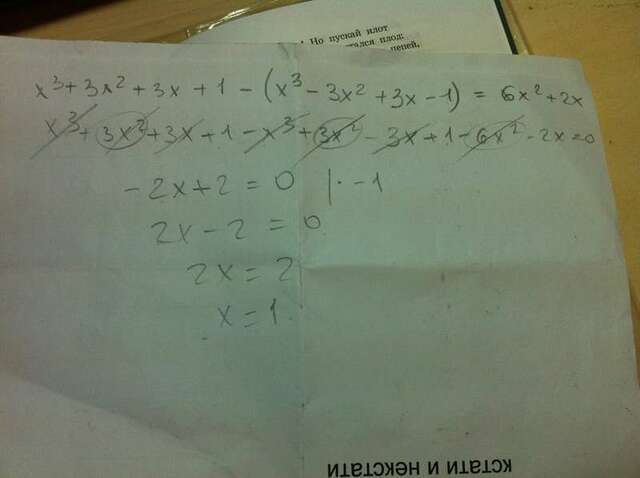 Но пускай илот
плод:
x³+3x²+3x+1-(x³-3x²+3x-1)=6x²+2x
x³+3x²+3x+1-x³+3x²-3x+1-6x²-2x=0
-2x+2=0 |·-1
2x-2=0
2x=2
x=1
кстати и некстати